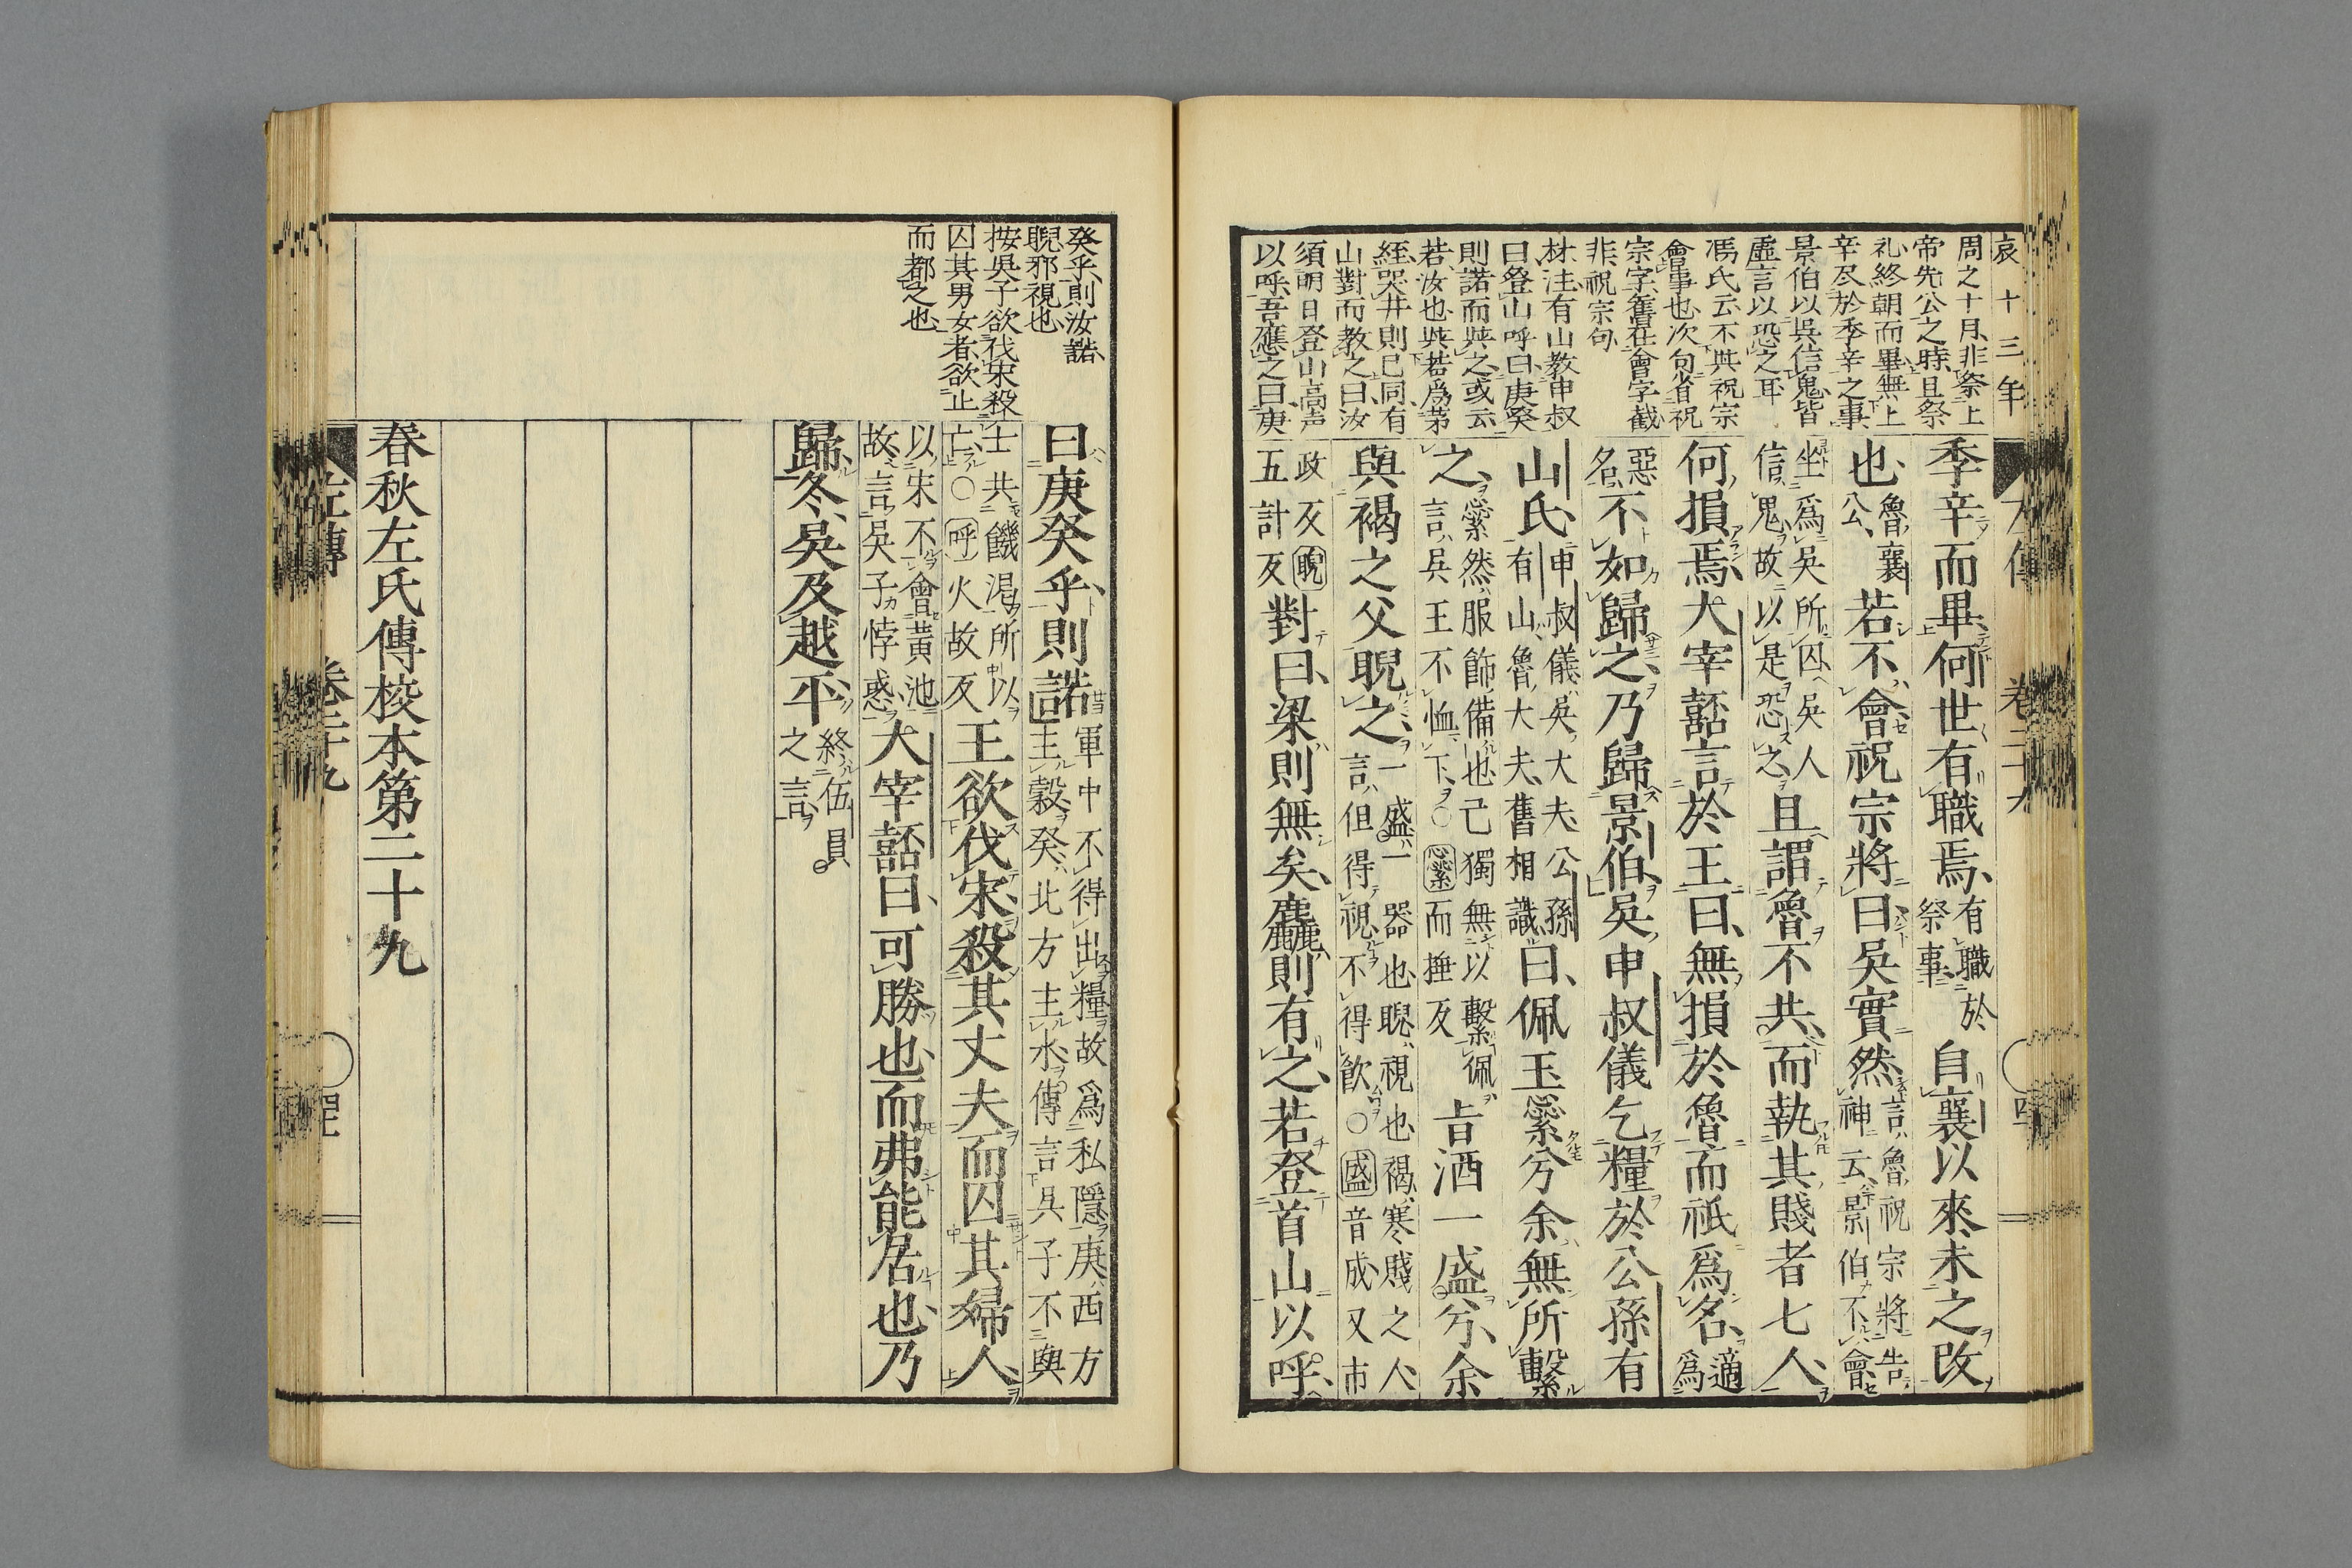 哀十三年
周之十月、非祭上
帝先公之時、且祭
礼終朝而畢、無上
辛尽於季辛之事
景伯以呉信鬼、皆
虚言以恐之耳
馮氏云不共祝宗
會事也、次句省祝
宗字、舊在會字截
非、祝宗句
林注有山教申叔
曰登山呼曰庚癸
則諾而與之、或云
若汝也與若爲茅
絰哭井則已同有
山對而教之曰汝
須明日登山高声
以呼、吾應之曰庚
季辛而畢、何世有職焉、有職於祭事、自襄以來、未之改
也、魯襄公、若不會、祝宗將曰吳實然、言魯祝宗將告神云、景伯不會
坐爲吳所囚、吳人信鬼、故以是恐之、且謂魯不共、而執其賤者七人、
何損焉、大宰嚭言於王曰、無損於魯、而祇爲名、適爲
惡名、不如歸之、乃歸景伯、吳申叔儀乞糧於公孫有
山氏、申叔儀吳大夫、公孫有山魯大夫、舊相識、曰、佩玉繠兮、余無所繫
之、繠然、服飾備也、己獨無以繫佩、言吳王不恤下、○繠而捶反 旨酒一盛兮、余
與褐之父睨之、一盛、一器也、睨、視也、褐、寒賤之人、言但得視、不得飲、○盛音成、又市
政反、睨五計反 對曰、梁則無矣、麤則有之、若登首山以呼、
癸乎、則汝諾、
睨、邪視也、
按吳子欲伐宋殺
囚其男女者、欲止
而都之也、
曰庚癸乎、則諾、軍中不得出糧、故爲私隱、庚、西方、主穀、癸、北方、主水、傳言吳子不與
士共饑渴、所以亡、○呼、火故反 王欲伐宋、殺其丈夫、而囚其婦人、
以宋不會黄池故、言吳子悖惑、大宰嚭曰、可勝也、而弗能居也、乃
歸、冬、吳及越平、終伍員之言、
春秋左氏傳校本第二十九
左傳 卷二十九